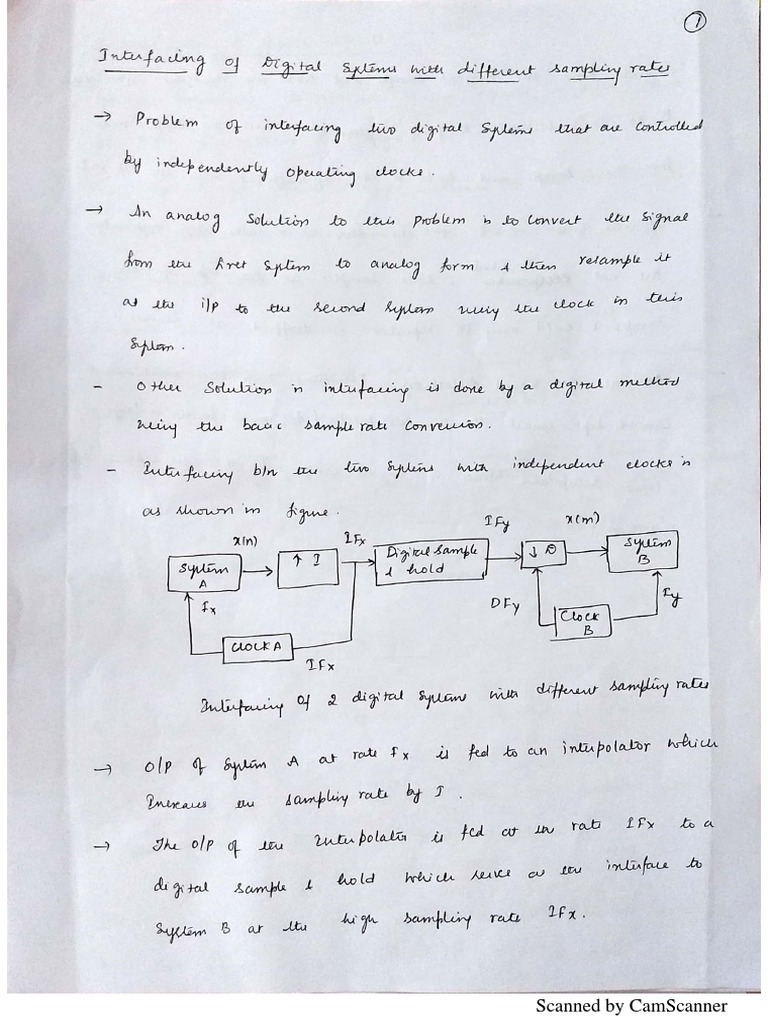 1
Interfacing of Digital Systems with different sampling rates
→ Problem of interfacing two digital Systems that are controlled
by independently operating clocks.
→ An analog Solution to this problem is to convert the signal
from the first System to analog form & then resample it
as the i/p to the second system using the clock in this
System.
- Other Solution is interfacing is done by a digital method
using the basic sample rate conversion.
- Interfacing b/n the two Systems with independent clocks is
as shown in figure.
x(n) IFx IFy x(m)
System A ↑ I Digital sample & hold ↓ D System B
Fx DFy Fy
CLOCK A Clock B
IFx
Interfacing of 2 digital System with different sampling rates
→ O/P of System A at rate Fx is fed to an interpolator which
Increases the sampling rate by I.
→ The O/P of the Interpolator is fed at the rate IFx to a
digital sample & hold which serve as the interface to
System B at the high sampling rate IFx.
Scanned by CamScanner